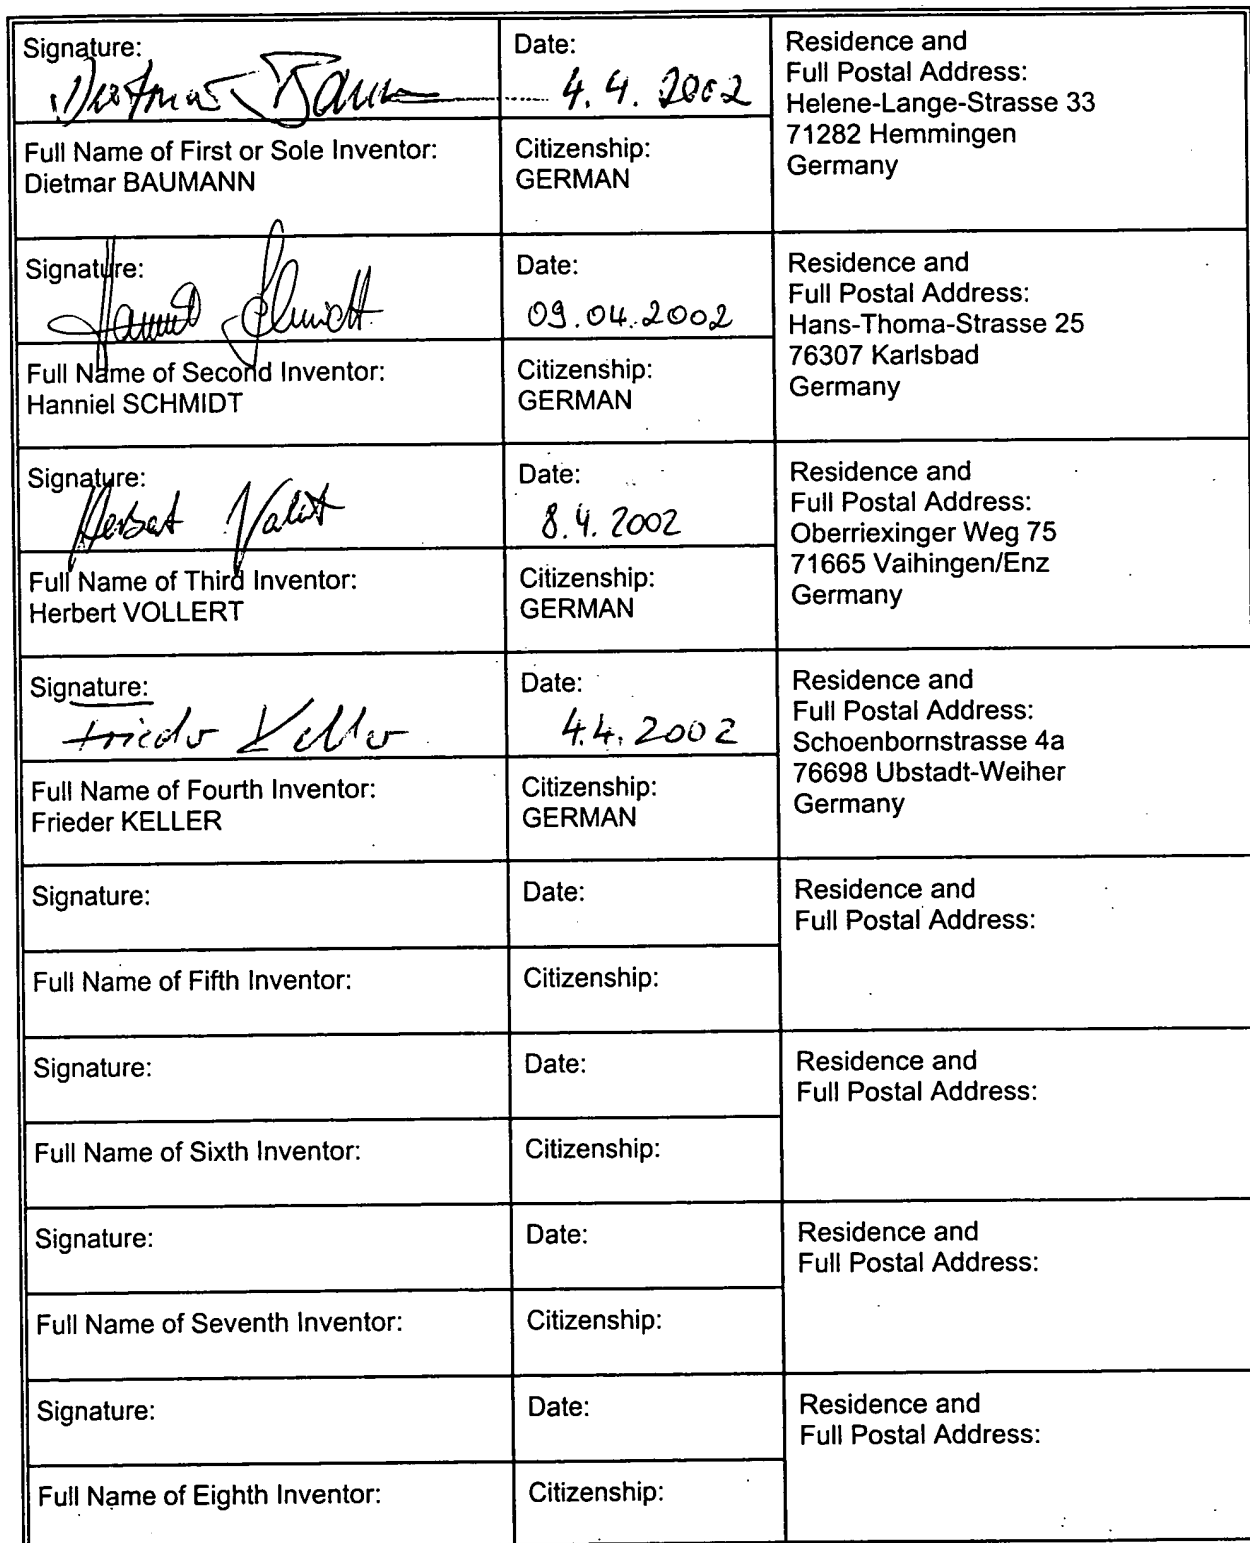 Signature:
Dietmar Baum
Date:
4. 4. 2002
Residence and
Full Postal Address:
Helene-Lange-Strasse 33
71282 Hemmingen
Germany
Full Name of First or Sole Inventor:
Dietmar BAUMANN
Citizenship:
GERMAN
Signature:
Hanniel Schmidt
Date:
09.04.2002
Residence and
Full Postal Address:
Hans-Thoma-Strasse 25
76307 Karlsbad
Germany
Full Name of Second Inventor:
Hanniel SCHMIDT
Citizenship:
GERMAN
Signature:
Herbert Vollert
Date:
8.4.2002
Residence and
Full Postal Address:
Oberriexinger Weg 75
71665 Vaihingen/Enz
Germany
Full Name of Third Inventor:
Herbert VOLLERT
Citizenship:
GERMAN
Signature:
Frieder Keller
Date:
4.4.2002
Residence and
Full Postal Address:
Schoenbornstrasse 4a
76698 Ubstadt-Weiher
Germany
Full Name of Fourth Inventor:
Frieder KELLER
Citizenship:
GERMAN
Signature:
Date:
Residence and
Full Postal Address:
Full Name of Fifth Inventor:
Citizenship:
Signature:
Date:
Residence and
Full Postal Address:
Full Name of Sixth Inventor:
Citizenship:
Signature:
Date:
Residence and
Full Postal Address:
Full Name of Seventh Inventor:
Citizenship:
Signature:
Date:
Residence and
Full Postal Address:
Full Name of Eighth Inventor:
Citizenship: